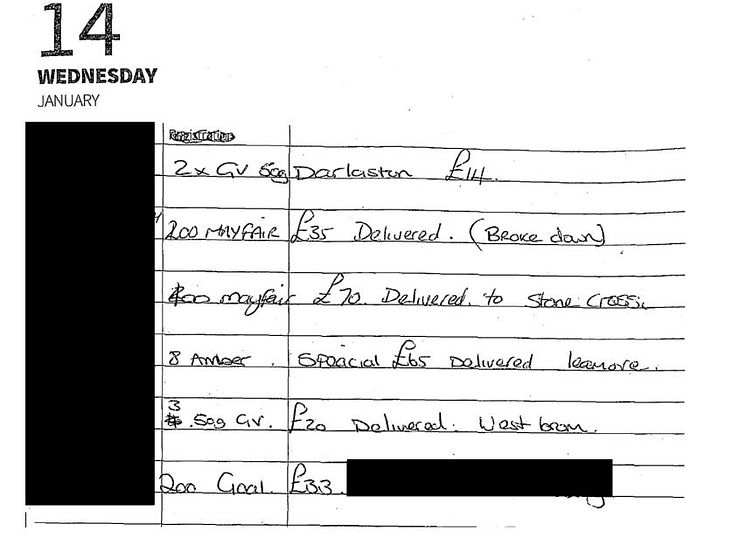 14
WEDNESDAY
JANUARY
2x GV 50g Darlaston £14.
200 MAYFAIR £35 Delivered. (Broke down)
400 mayfair £70. Delivered. to Stone Cross.
8 Amber. Speacial £65 Delivered leamore.
3 50g GV. £20 Delivered. West brom.
200 Goal. £33.